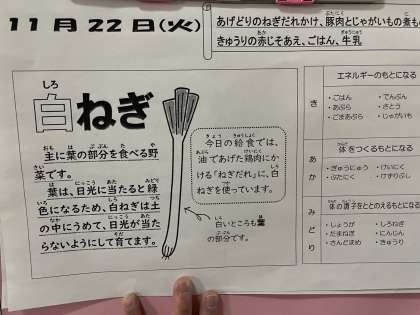 11月22日(火)
あげどりのねぎだれかけ、豚肉とじゃがいもの煮も
きゅうりの赤じそあえ、ごはん、牛乳
白ねぎ
主に葉の部分を食べる野
菜です。
葉は、日光に当たると緑
色になるため、白ねぎは土
の中にうめて、日光が当た
らないようにして育てます。
今日の給食では、
油であげた鶏肉にか
ける「ねぎだれ」に、白
ねぎを使っています。
白いところも葉
の部分です。
エネルギーのもとになる
き
・ごはん ・でんぷん
・あぶら ・さとう
・ごまあぶら ・じゃがいも
体をつくるもとになる
あか
・ぎゅうにゅう ・けいにく
・ぶたにく ・けずりぶし
体の調子をととのえるもとになる
みどり
・しょうが ・しろねぎ
・たまねぎ ・にんじん
・さんどまめ ・きゅうり